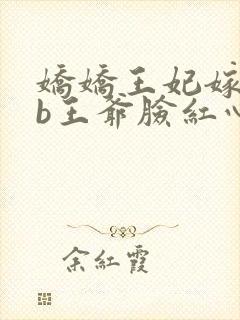 嬌嬌王妃嫁
b王爺臉紅心
余紅霞